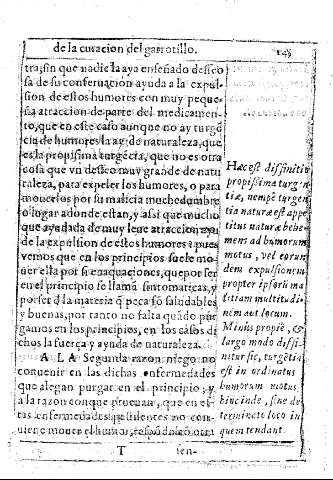 de la curacion del garrotillo.
145
tra, sin que nadie la aya enseñado deseo
sa de su conseruacion ayuda a la expul-
sion de estos humores con muy peque-
ña atraccion de parte del medicamen-
to, que en este caso aunque no ay turgẽ
cia de humores la ay de naturaleza, que
es la propisima turgẽcia, que no es otra
cosa que vn deseo muy grande de natu
raleza, para expeler los humores, o para
mouerlos por su malicia muchedumbre
o lugar adonde estan, y asi que mucho
que ayudada de muy leue atraccion
de la expulsion de estos humores pues
vemos que en los principios suele mo-
uer ella por si euacuaciones, que por ser
en el principio se llamã sintomaticas, y
por ser la materia q̃ peca no saludables
y buenas, por tanto no falta quãdo pur
gamos en los principios, en los casos di
chos la fuerça y ayuda de naturaleza.
A LA Segunda razon niego no
conuenir en las dichas enfermedades
que alegan purgar en el principio; y
a la razon conque prueuan, que en es-
tas enfermedades pestilentes no con-
uiene mouer el humor, respõdo
T
ien-
Hæc est diffinitio
propissima turgen
tiæ, nempè turgen
tia naturæ est appe
titus naturæ vehe
mens ad humorum
motus, vel eorun
dem expulsionem
propter ipsorũ ma
litiam multitudi-
nem aut locum.
Minùs propiè, &
largo modo diffi-
nitur sic, turgẽtia
est in ordinatus
humorum motus
huc inde, sine de
terminato loco in
quem tendant.